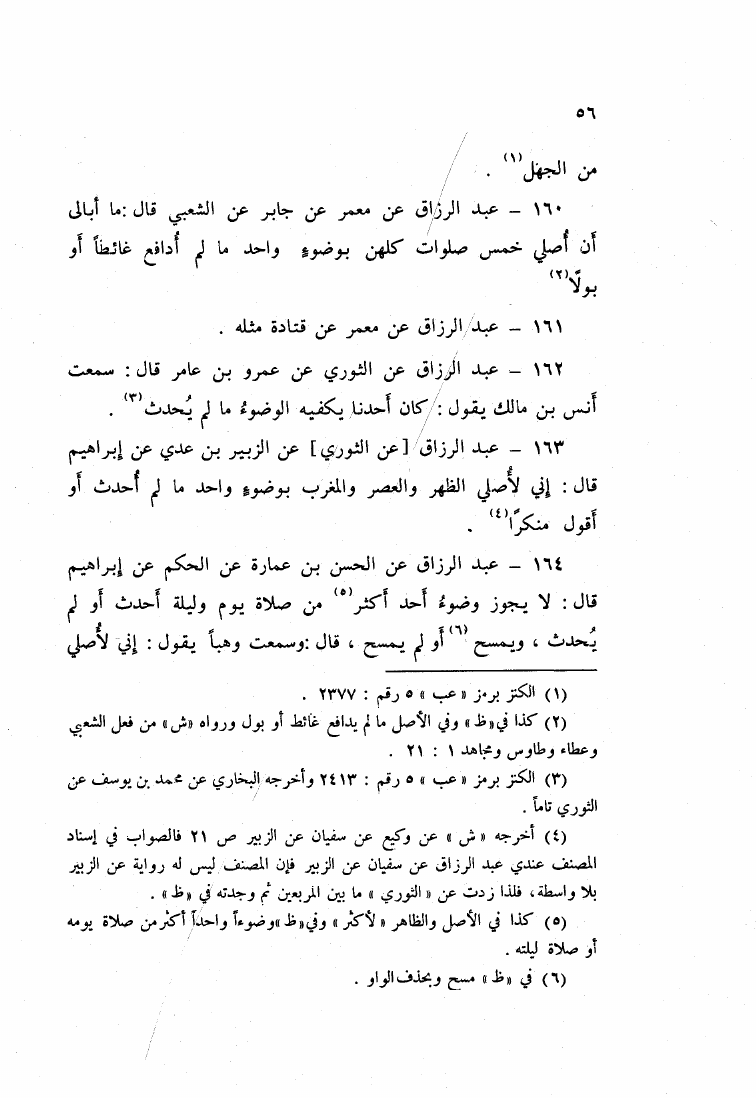 ٥٦
من الجهل(١) .
١٦٠ – عبد الرزاق عن معمر عن جابر عن الشعبي قال :ما أبالى
أن أُصلي خمس صلوات كلهن بوضوءٍ واحد ما لم أُدافع غائطاً أو
بولًا(٢)
١٦١ – عبد الرزاق عن معمر عن قتادة مثله .
١٦٢ – عبد الرزاق عن الثوري عن عمرو بن عامر قال : سمعت
أنس بن مالك يقول : كان أحدنا يكفيه الوضوءُ ما لم يُحدث(٣) .
١٦٣ – عبد الرزاق [عن الثوري] عن الزبير بن عدي عن إبراهيم
قال : إني لأُصلي الظهر والعصر والمغرب بوضوءٍ واحد ما لم أُحدث أو
أقول منكرًا(٤) .
١٦٤ – عبد الرزاق عن الحسن بن عمارة عن الحكم عن إبراهيم
قال : لا يجوز وضوءُ أحد أكثر(٥) من صلاة يوم وليلة أحدث أو لم
يُحدث ، ويمسح(٦) أو لم يمسح ، قال :وسمعت وهباً يقول : إني لأُصلي
(١) الكنز برمز «عب» ٥ رقم : ٢٣٧٧ .
(٢) كذا في«ظ» وفي الأصل ما لم يدافع غائط أو بول ورواه «ش» من فعل الشعبي
وعطاء وطاوس ومجاهد ١ : ٢١ .
(٣) الكنز برمز «عب» ٥ رقم : ٢٤١٣ وأخرجه البخاري عن محمد بن يوسف عن
الثوري تاماً .
(٤) أخرجه «ش» عن وكيع عن سفيان عن الزبير ص ٢١ فالصواب في إسناد
المصنف عندي عبد الرزاق عن سفيان عن الزبير فإن المصنف ليس له رواية عن الزبير
بلا واسطة، فلذا زدت عن «الثوري» ما بين المربعين ثم وجدته في «ظ» .
(٥) كذا في الأصل والظاهر «لأكثر» وفي«ظ»وضوءاً واحداً أكثر من صلاة يومه
أو صلاة ليلته .
(٦) في «ظ» مسح وبحذف الواو .